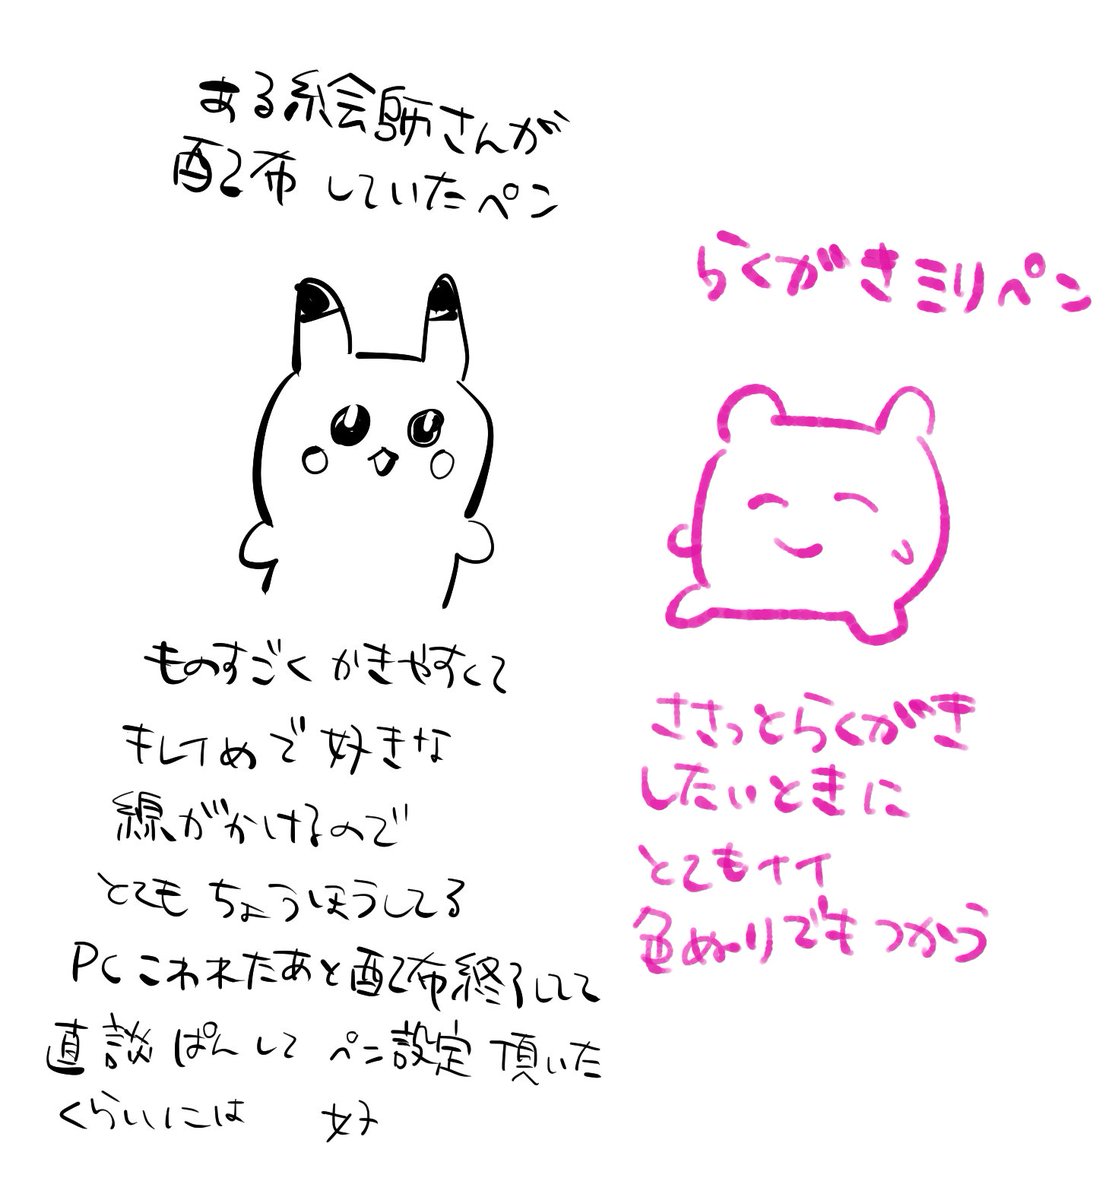 ある絵師さんが
配布していたペン
ものすごくかきやすくて
キレイめで好きな
線がかけるので
とてもちょうほうしてる
PCこわれたあと配布終了してて
直談ぱんして ペン設定頂いた
くらいには 好
らくがきミリペン
ささっとらくがき
したいときに
とてもナイ
色ぬりでもつかう